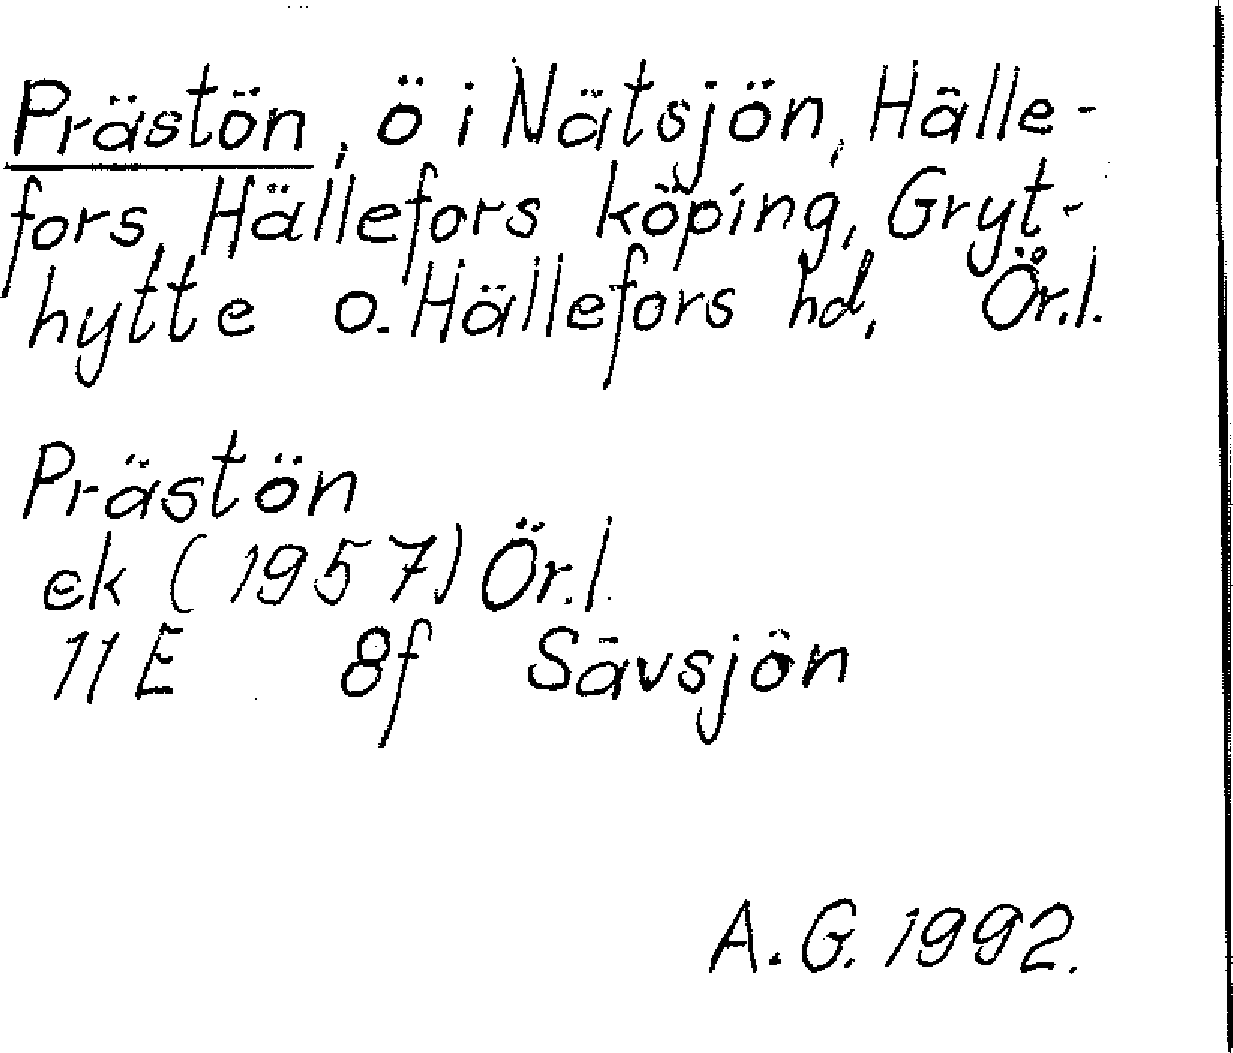 Prästön, ö i Nätsjön, Hälle-
fors, Hällefors köping, Gryt-
hytte o. Hällefors hd, Ör.l.
Prästön
ek (1957) Ör.l.
11E 8f Sävsjön
A.G. 1992.